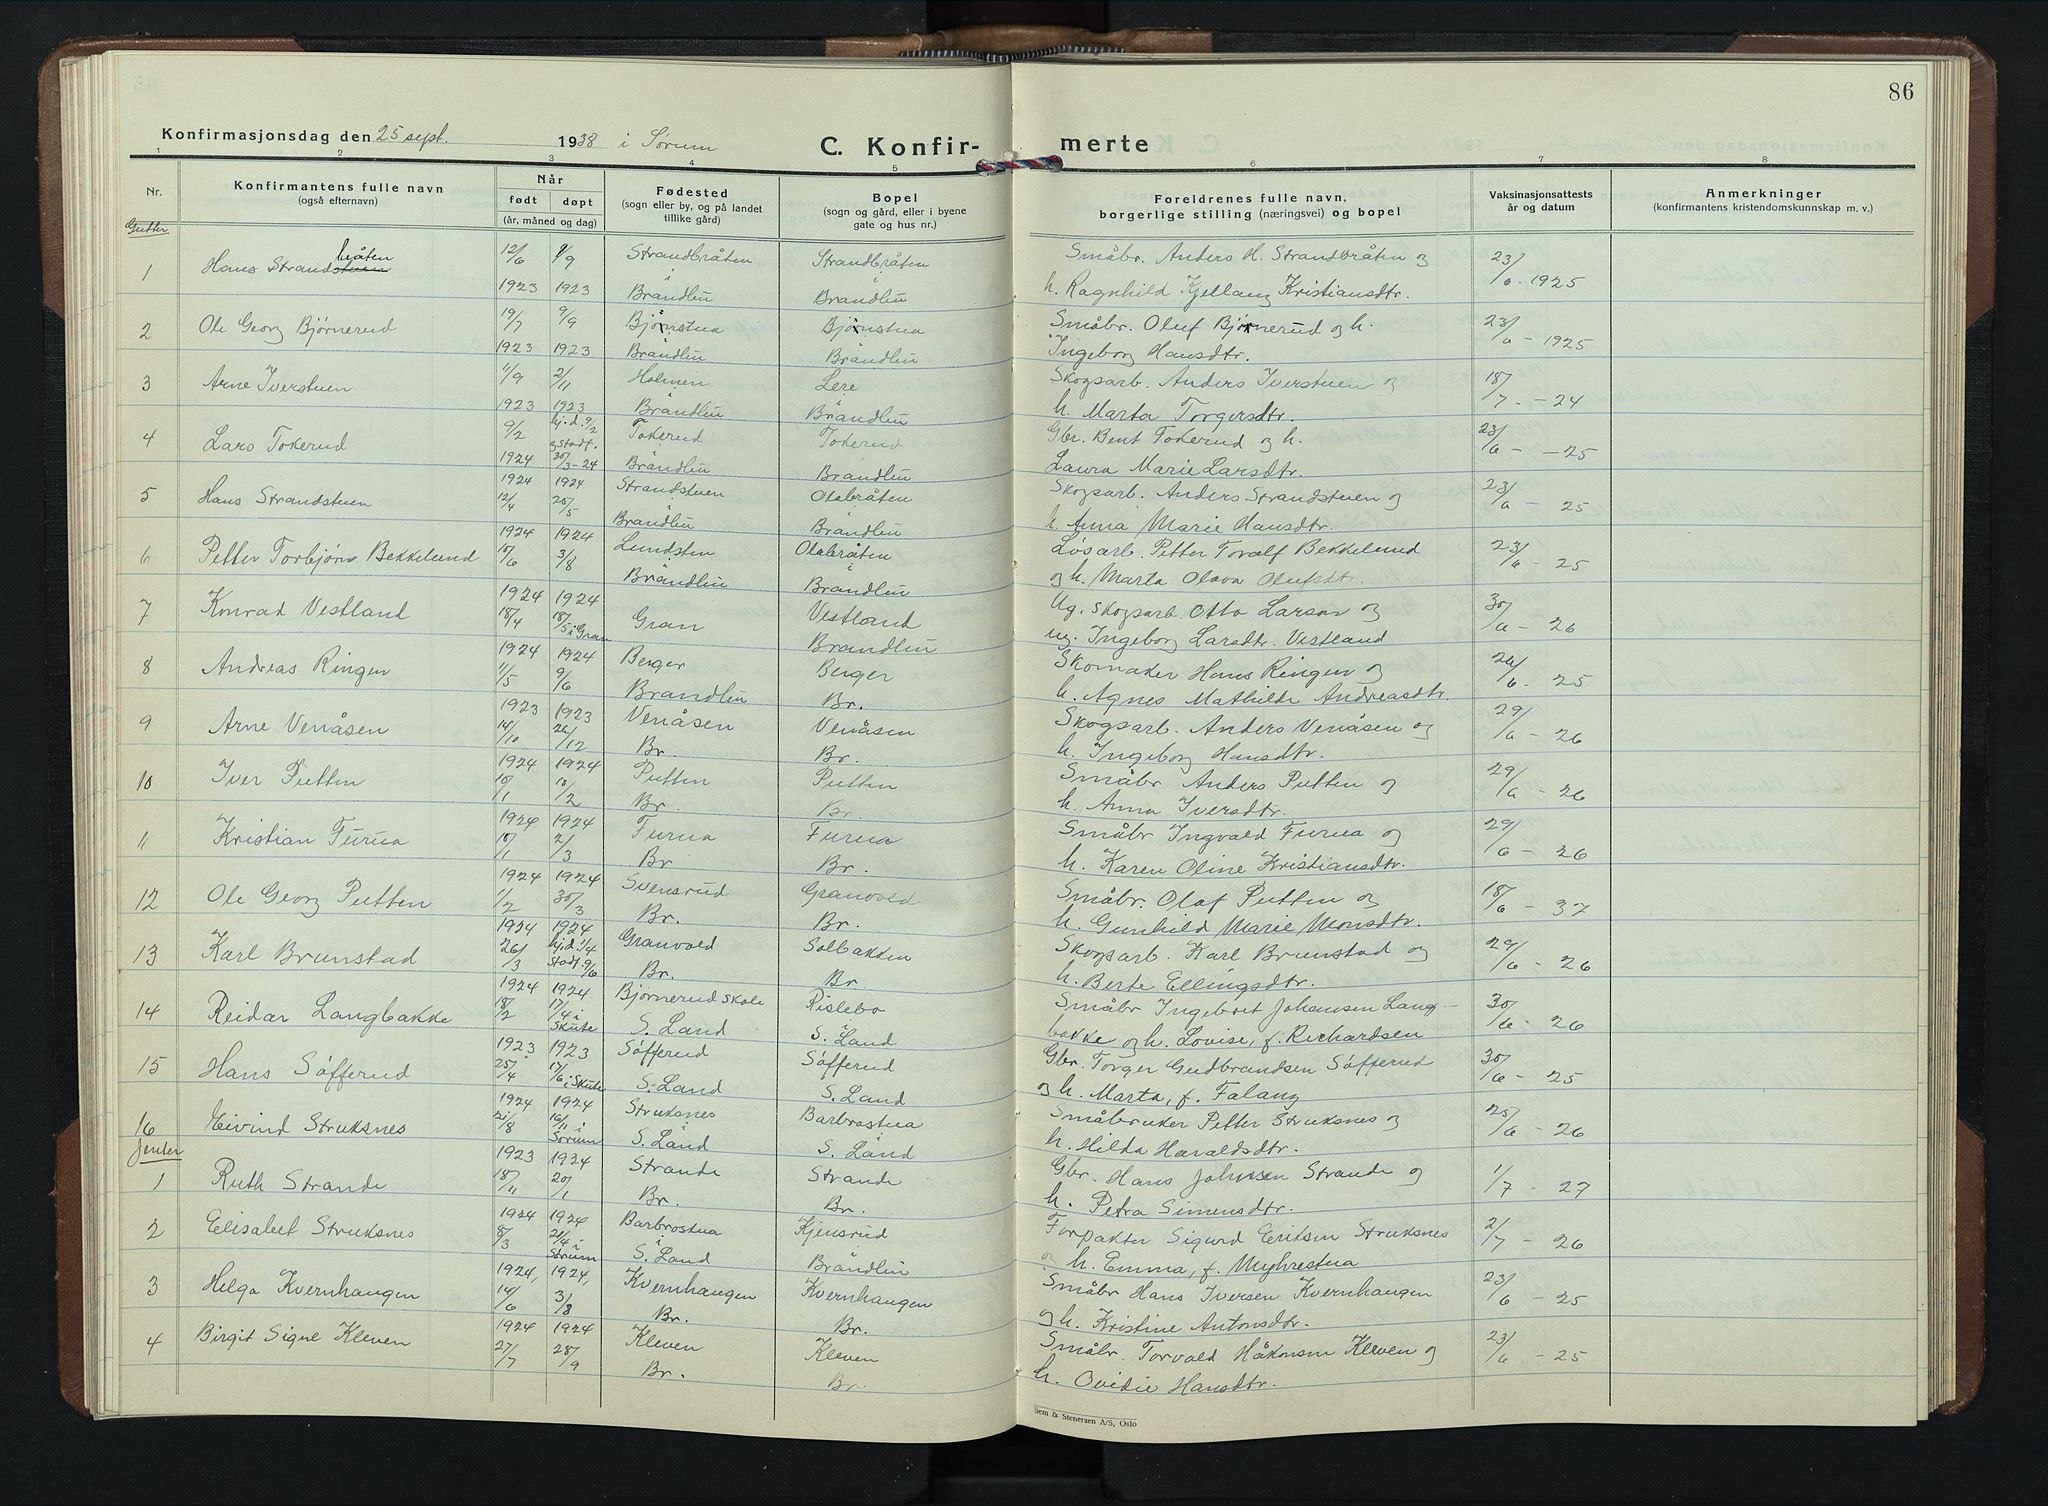 86
Konfirmasjonsdag den 25 sept. 1938 i Sørum
C. Konfirmerte
1 2 3 4 5 6 7 8
Nr. Konfirmantens fulle navn (også efternavn) Når født døpt (år, måned og dag) Fødested (sogn eller by, og på landet tillike gård) Bopel (sogn og gård, eller i byene gate og hus nr.) Foreldrenes fulle navn, borgerlige stilling (næringsvei) og bopel Vaksinasjonsattests år og datum Anmerkninger (konfirmantens kristendomskunnskap m. v.)
Gutter
1 Hans Strandstuen bråten 12/6 1923 9/9 1923 Strandbråten i Brandlin Strandbråten i Brandlin Småbr. Anders H. Strandbråten og
h. Ragnhild Gjellang Kristiansdtr. 23/6 - 1925
2 Ole Georg Bjørnerud 19/7 1923 9/9 1923 Bjønstua Brandlin Bjønstua Brandlin Småbr. Oluf Bjørnerud og h.
Ingeborg Hansdtr. 23/6 - 1925
3 Arne Iverstuen 11/9 1923 2/11 1923 Holmen Brandlin Lere Brandlin Skogsarb. Anders Iverstuen og
h. Marta Torgersdtr. 18/7 - 24
4 Lars Tokerud 9/2 1924 hj.d. 9/2 og stadf. 30/3-24 Tokerud Brandlin Tokerud Brandlin Gbr. Bent Tokerud og h.
Laura Marie Larsdtr. 23/6 - - 25
5 Hans Strandstuen 1924 12/4 1924 25/5 Strandstuen Brandlin Olabråten Brandlin Skogsarb. Anders Strandstuen og
h. Anna Marie Hansdtr. 23/6 - 25
6 Petter Torbjørn Bekkelund 1924 15/6 1924 3/8 Lundsten Brandlin Olabråten i Brandlin Løsarb. Petter Toralf Bekkelund
og h. Marta Olava Olufsdtr. 23/6 - 25
7 Konrad Vestland 1924 18/4 1924 18/5 i Gran Gran Vestland Brandlin Ug. skogsarb. Otto Larson og
ug. Ingeborg Larsdtr. Vestland 30/6 - 26
8 Andreas Ringen 1924 11/5 1924 9/6 Berger Brandlin Berger Br. Skomaker Hans Ringen og
h. Agnes Mathilde Andreasdtr. 26/6 - 25
9 Arne Venåsen 1923 14/10 1923 26/12 Venåsen Br. Venåsen Br. Skogsarb. Anders Venåsen og
h. Ingeborg Hansdtr. 29/6 - 26
10 Iver Putten 1924 15/1 1924 10/2 Putten Br. Putten Br. Småbr Anders Putten og
h. Anna Iversdtr. 29/6 - 26
11 Kristian Furua 1924 15/1 1924 2/3 Furua Br. Furua Br. Småbr Ingvald Furua og
h. Karen Oline Kristiansdtr. 29/6 - 26
12 Ole Georg Putten 1924 1/2 1924 30/3 Svensrud Br. Granvold Br. Småbr. Olaf Putten og
h. Gunhild Marie Monsdtr. 18/6 - 37
13 Karl Brunstad 1924 26/3 1924 hj.d. 1/4 stadf. 9/6 Granvold Br. Solbakken Br Skogsarb. Karl Brunstad og
h. Berte Ellingsdtr. 29/6 - 26
14 Reidar Langbakke 1924 18/2 1924 17/4 i Skute Bjørnerud skole S. Land Rislebo S. Land Småbr Ingebret Johansen Lang-
bakke og h. Lovise, f. Richardsen 30/6 - 26
15 Hans Søfferud 1923 25/4 1923 17/6 i Skute Søfferud S. Land Søfferud S. Land Gbr. Torger Gudbrandsen Søfferud
og h. Marta, f. Falang 30/6 - 25
16 Eivind Struksnes 1924 21/8 1924 16/11 i Sørum Struksnes S. Land Barbrostua S. Land Småbruker Petter Struksnes og
h. Hilda Haraldsdtr. 25/6 - 26
Jenter
1 Ruth Strande 1923 18/11 1924 20/1 Strande Br. Strande Br. Gbr. Hans Johnsen Strande og
h. Petra Simensdtr. 1/7 - 27
2 Elisabet Struksnes 1924 8/3 1924 21/4 i Sørum Barbrostua i S. Land Kjensrud Brandlin Forpakter Sigurd Eriksen Struksnes
og h. Emma, f. Myhrestua 2/7 - 26
3 Helga Kvernhaugen 1924, 14/6 1924, 3/8 Kvernhaugen Br. Kvernhaugen Br. Småbr Hans Iversen Kvernhaugen
og h. Kristine Antonsdtr. 23/6 - 25
4 Birgit Signe Kleven 1924 27/7 1924 28/9 Kleven Br. Kleven Br. Småbr. Torvald Håkonsen Kleven og
h. Ovidie Hansdtr. 23/6 - 25
Sem & Stenersen A/S, Oslo